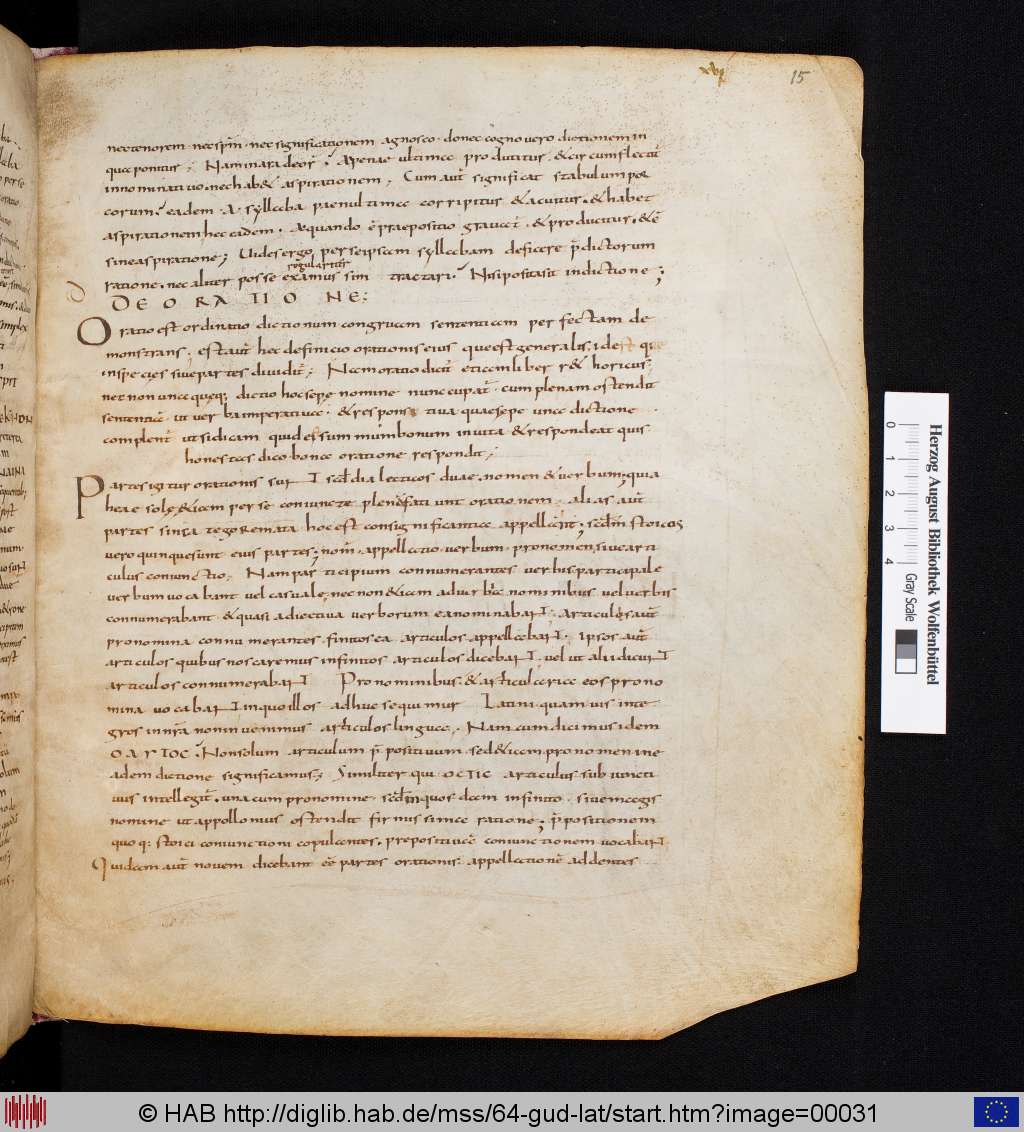 15
nec tenorem nec spm̄ · nec significationem agnosco · donec cognovero dictionem in
qua ponitur ; Nam in ara deor̄ ; A penae ultima producitur · & circumflectit̄
in nominativo · nec hab& aspirationem ; Cum aut̄ significat stabulum por
corum ; eadem · a · syllaba paenultima corripitur & acuitur · & habet
aspirationem hec eadem · a quando ē praepositio gravat̄ · & producitur · & ē
sine aspiratione ; Vides ergo per se ipsam syllabam deficere p̄dictorum
regulariter
ratione · nec aliter posse examus sim tractari · Nisi posita sit in dictione ;
D
DE ORATIONE ;
Oratio est ordinatio dictionum congruam sententiam perfectam de
monstrans · est aut̄ hec definicio orationis eius quae est generalis · idest que
in species sive partes dividit̄ ; Nam oratio dicit̄ etiam liber r&horicus ;
nec non unaquęq; dictio hoc sepe nomine nuncupat̄ · cum plenam ostendit
sententiā · ut verba imperativa · & responsativa quae sepe una dictione
complent̄ ut si dicam quid est summum bonum in vita & respondeat quis
honestas dico bona oratione respondit ;
Partes igitur orationis sunt scdm̄ dialecticos duae · nomen & verbum ; quia
heae solę &iam per se coniunctae plenā faciunt orationem · alias aut̄
partes sincategoremata hoc est consignificantia appellabant ; scdm̄ stoicos
vero quinque sunt eius partes ; nom̄ · appellatio · verbum · pronomen · sive arti
culus coniunctio ; Nam participium connumerantes verbis participale
verbum vocabant vel casuale ; nec non &iam adverbia nominibus vel verbis
connumerabant & quasi adiectiva verborum ea nominabant · Articulos aut̄
pronomina connumerantes finitos ea articulos appellabant · ipsos aut̄
articulos quibus nos caremus infinitos articulos dicebant · vel ut alii dicunt
articulos connumerabant Pronominibus · & articularia eos prono
mina vocabant in quo illos adhuc sequimur Latini quamvis inte
gros in nr̄a non invenimus articulos lingua · Nam cum dicimus idem
Ο ΑΥΤΟC ; Non solum articulum p̄positivum sed &iam pronomen ine
adem dictione significamus ; Similiter qui ΟCΤΙC articulus subiuncti
vus intellegit̄ · una cum pronomine · scdm̄ quosdam infinito · sive magis
nomine ut appollonius ostendit firmissima ratione ; p̄positionem
quoq; stoici coniunctioni copulantes · prepositivā coniunctionem vocabant
Quidam aut̄ novem dicebant eē partes orationis · appellationē addentes
0 1 2 3 4
Gray Scale
Herzog August Bibliothek Wolfenbüttel
© HAB http://diglib.hab.de/mss/64-gud-lat/start.htm?image=00031